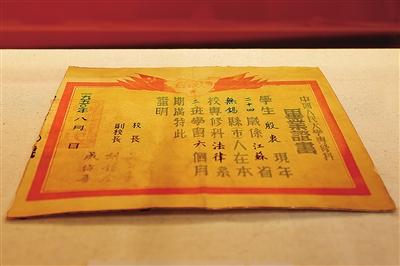 中國人民大學專修科
畢業證書
學生 殷 現年
二十四歲係江蘇省
無錫縣市人在本
校專修科法律系
班學習六個月
期滿特此
證明
校長
副校長
胡錫奎
成仿吾
一九五 年八月 日